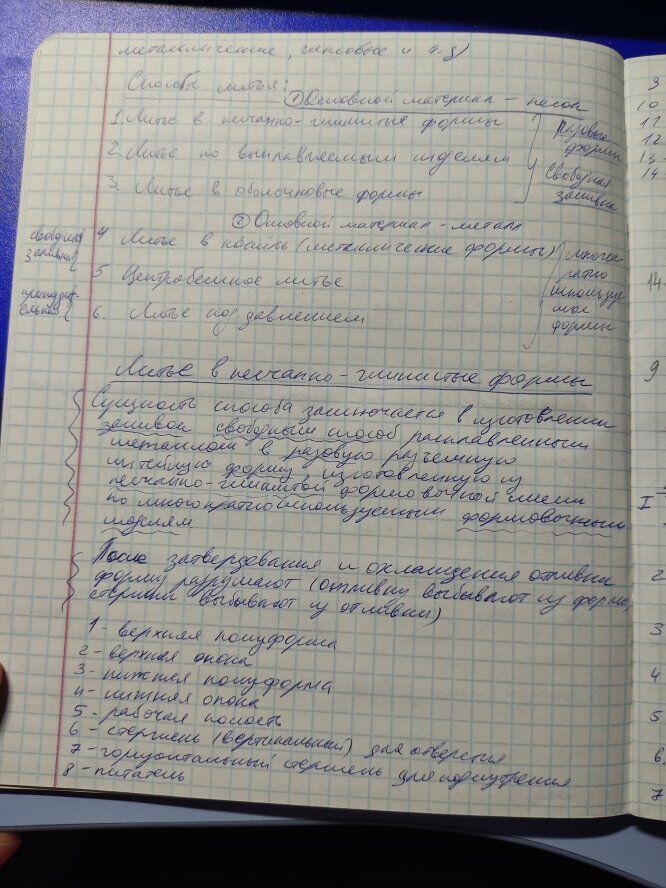 металлические, гипсовые и т.д)
Способы литья:
① Основной материал - песок
1. Литье в песчанно-глинистые формы
2. Литье по выплавляемым моделям
3. Литье в оболочковые формы
Разовые
формы
Свободная
заливка
② Основной материал - металл
4 Литье в кокиль (металлические формы)
5 Центробежное литье
6. Литье под давлением
свободная
заливка
принудит-
ельная
много
кратно
используе
мые
формы
Литье в песчанно-глинистые формы
Сущность способа заключается в изготовлении
заливкой свободным способ расплавленным
металлом в разовую разъемную
литейную форму, изготовленную из
песчанно-глинистой формовочной смеси
по многократноиспользуемым формовочным
моделям.
После затвердевания и охлаждения отливки
форму разрушают (отливку выбывают из формы,
стержни выбывают из отливки)
1 - верхняя полуформа
2 - верхняя опока
3 - нижняя полуформа
4 - нижняя опока
5 - рабочая полость
6 - стержень (вертикальный) для отверстия
7 - горизонтальный стержень для поднутрения
8 - питатель
3
10
11
12
13
14
14
9
I
2
3
4
5
6.
7